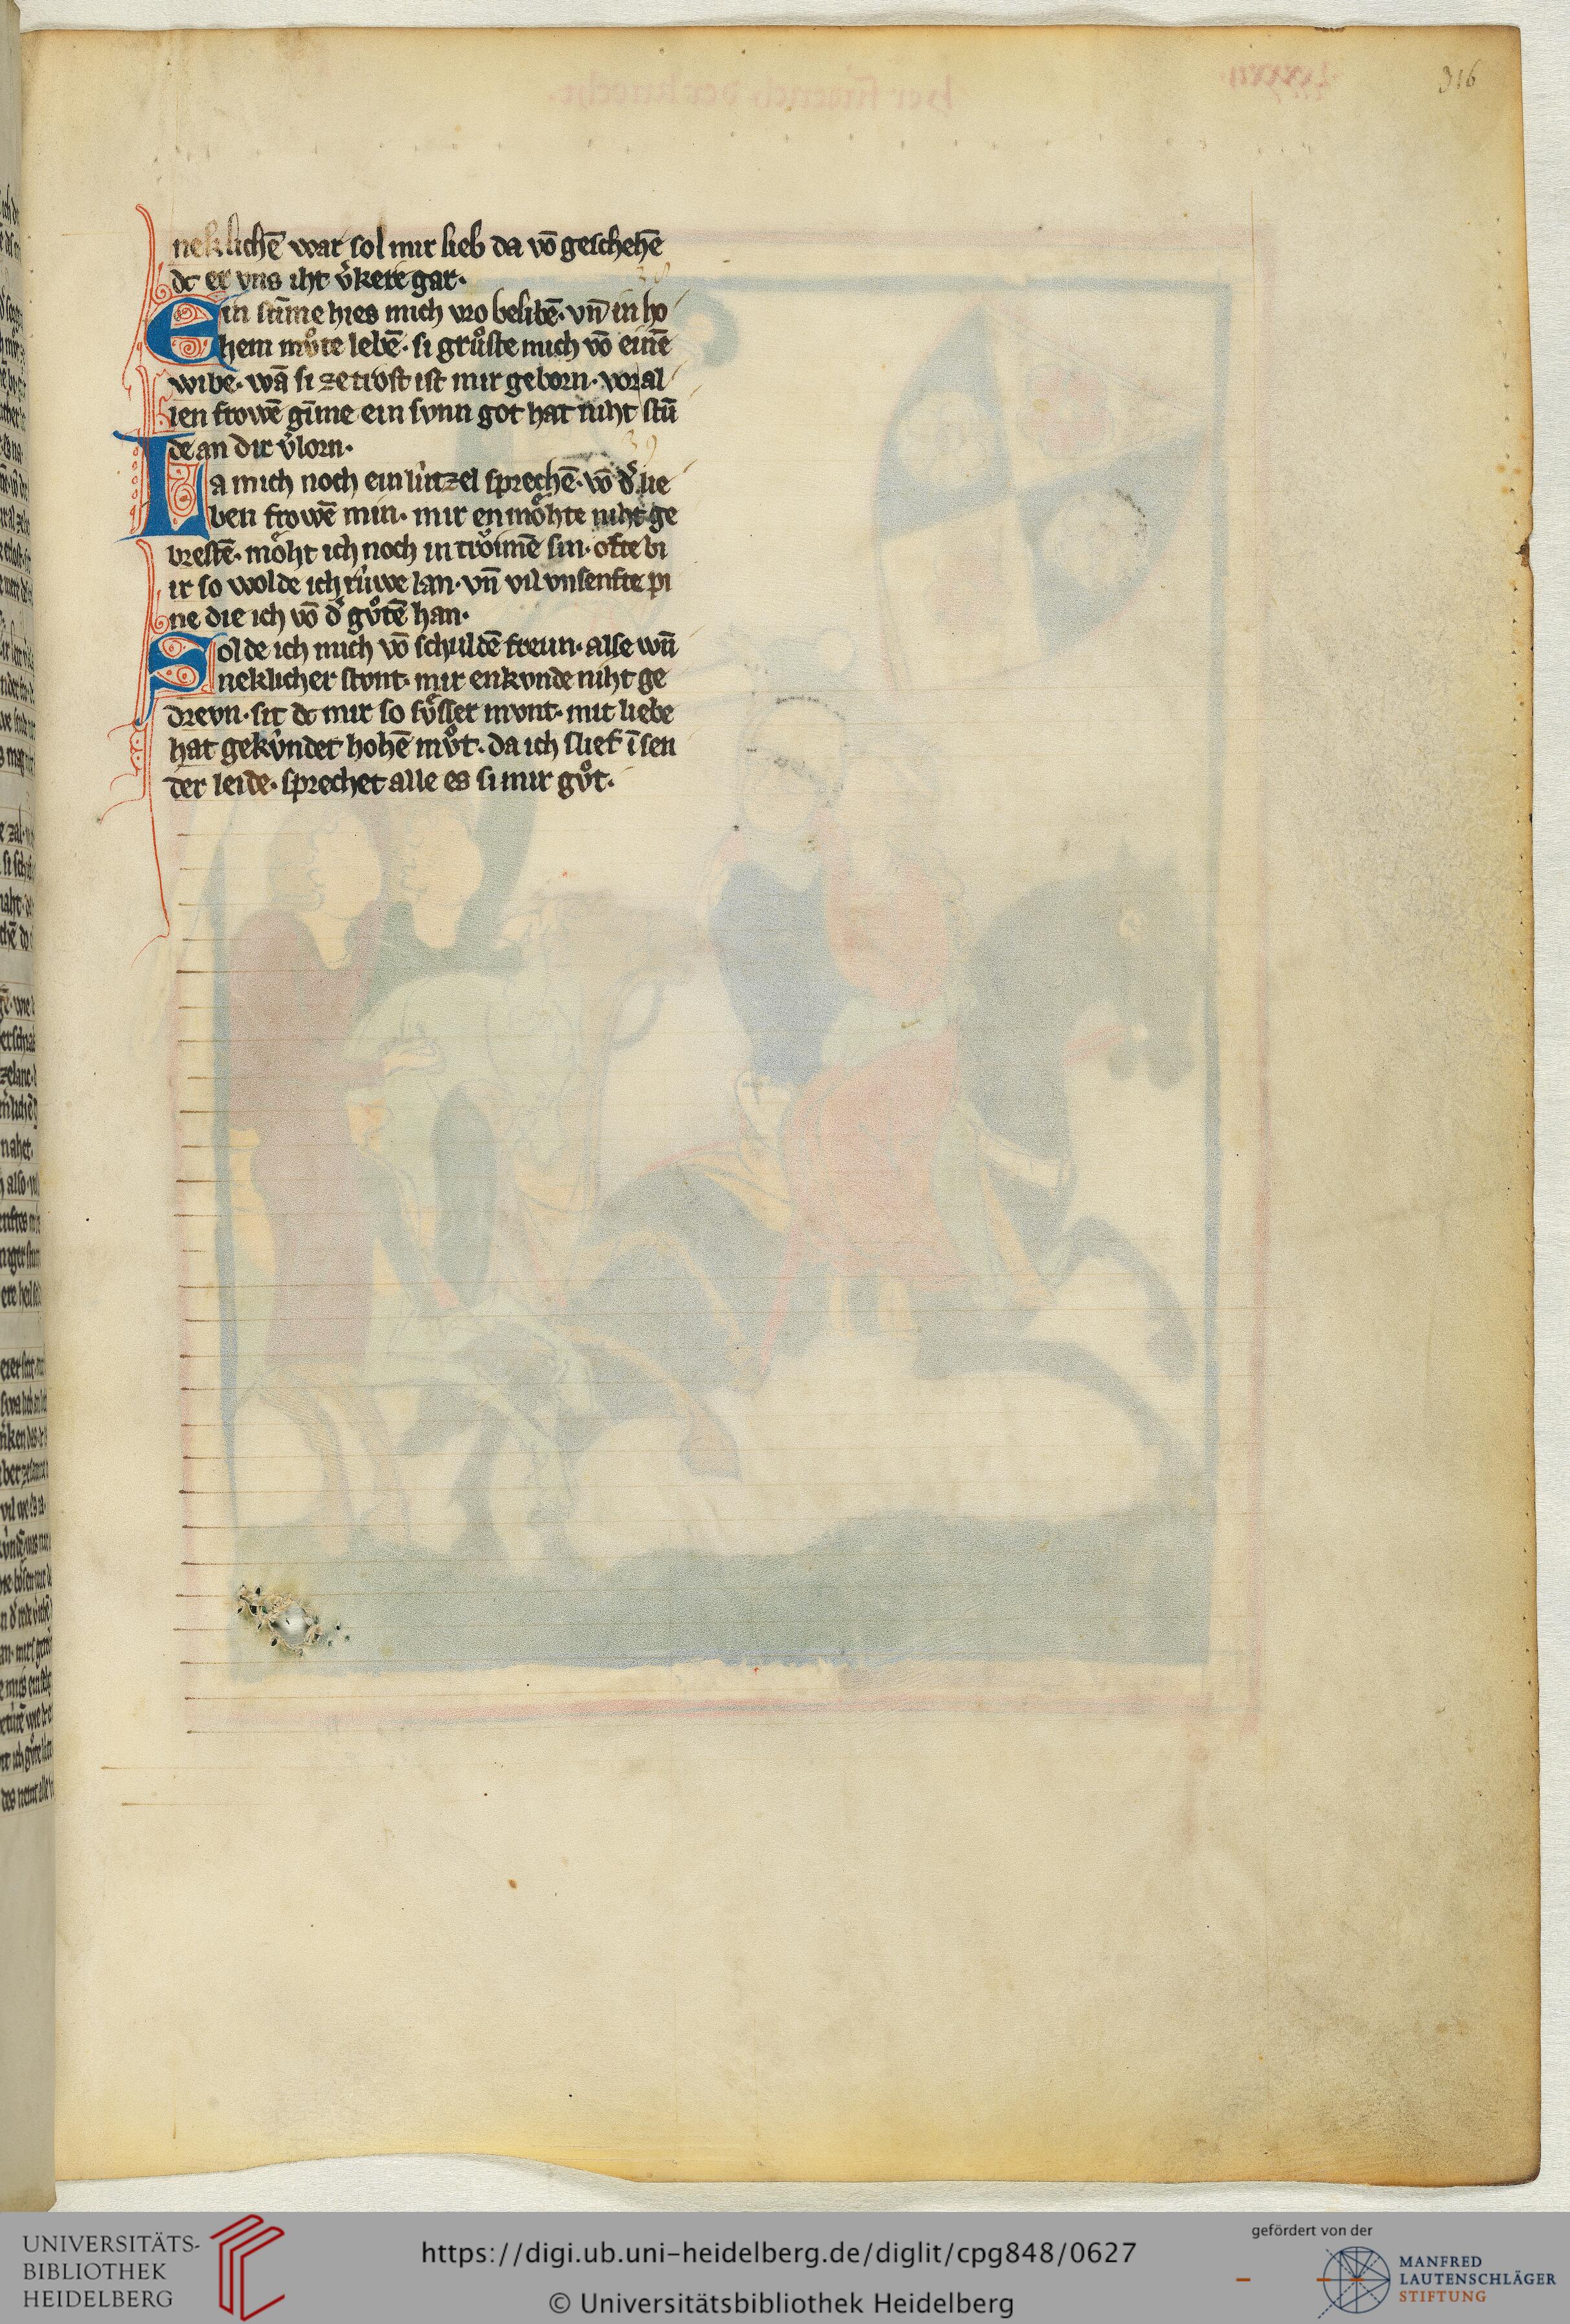 316
neklichē war sol mir lieb da vō geschehē
dc er vns iht v̾kere gar·
Ein stīme hies mich vro belibē· vn̄ in ho
hem mv̊te lebē· si grůste mich vō einē
wibe· wā si ze trost ist mir geborn· vor al
len frowē gīme ein svnn got hat niht stū
de an dir v̾lorn·
La mich noch ein lútzel sprechē· vō d̾ lie
ben frowē min· mir en mo̊hte niht ge
brestē· mo̊ht ich noch in tro̊imē sin· ofte bi
ir so wolde ich rúwe lan· vn̄ vil vnsenfte pi
ne die ich vō d̾ gv̊tē han·
Solde ich mich vō schuldē freun· alse wn̄
neklicher stvnt· mir enkvnde niht ge
drevn· sit dc mir so sv̊sser mvnt· mit liebe
hat gekv́ndet hohē mv̊t· da ich slief ī sen
der leide· sprechet alle es si mir gv̊t·
UNIVERSITÄTS-
BIBLIOTHEK
HEIDELBERG
https://digi.ub.uni-heidelberg.de/diglit/cpg848/0627
© Universitätsbibliothek Heidelberg
gefördert von der
MANFRED
LAUTENSCHLÄGER
STIFTUNG